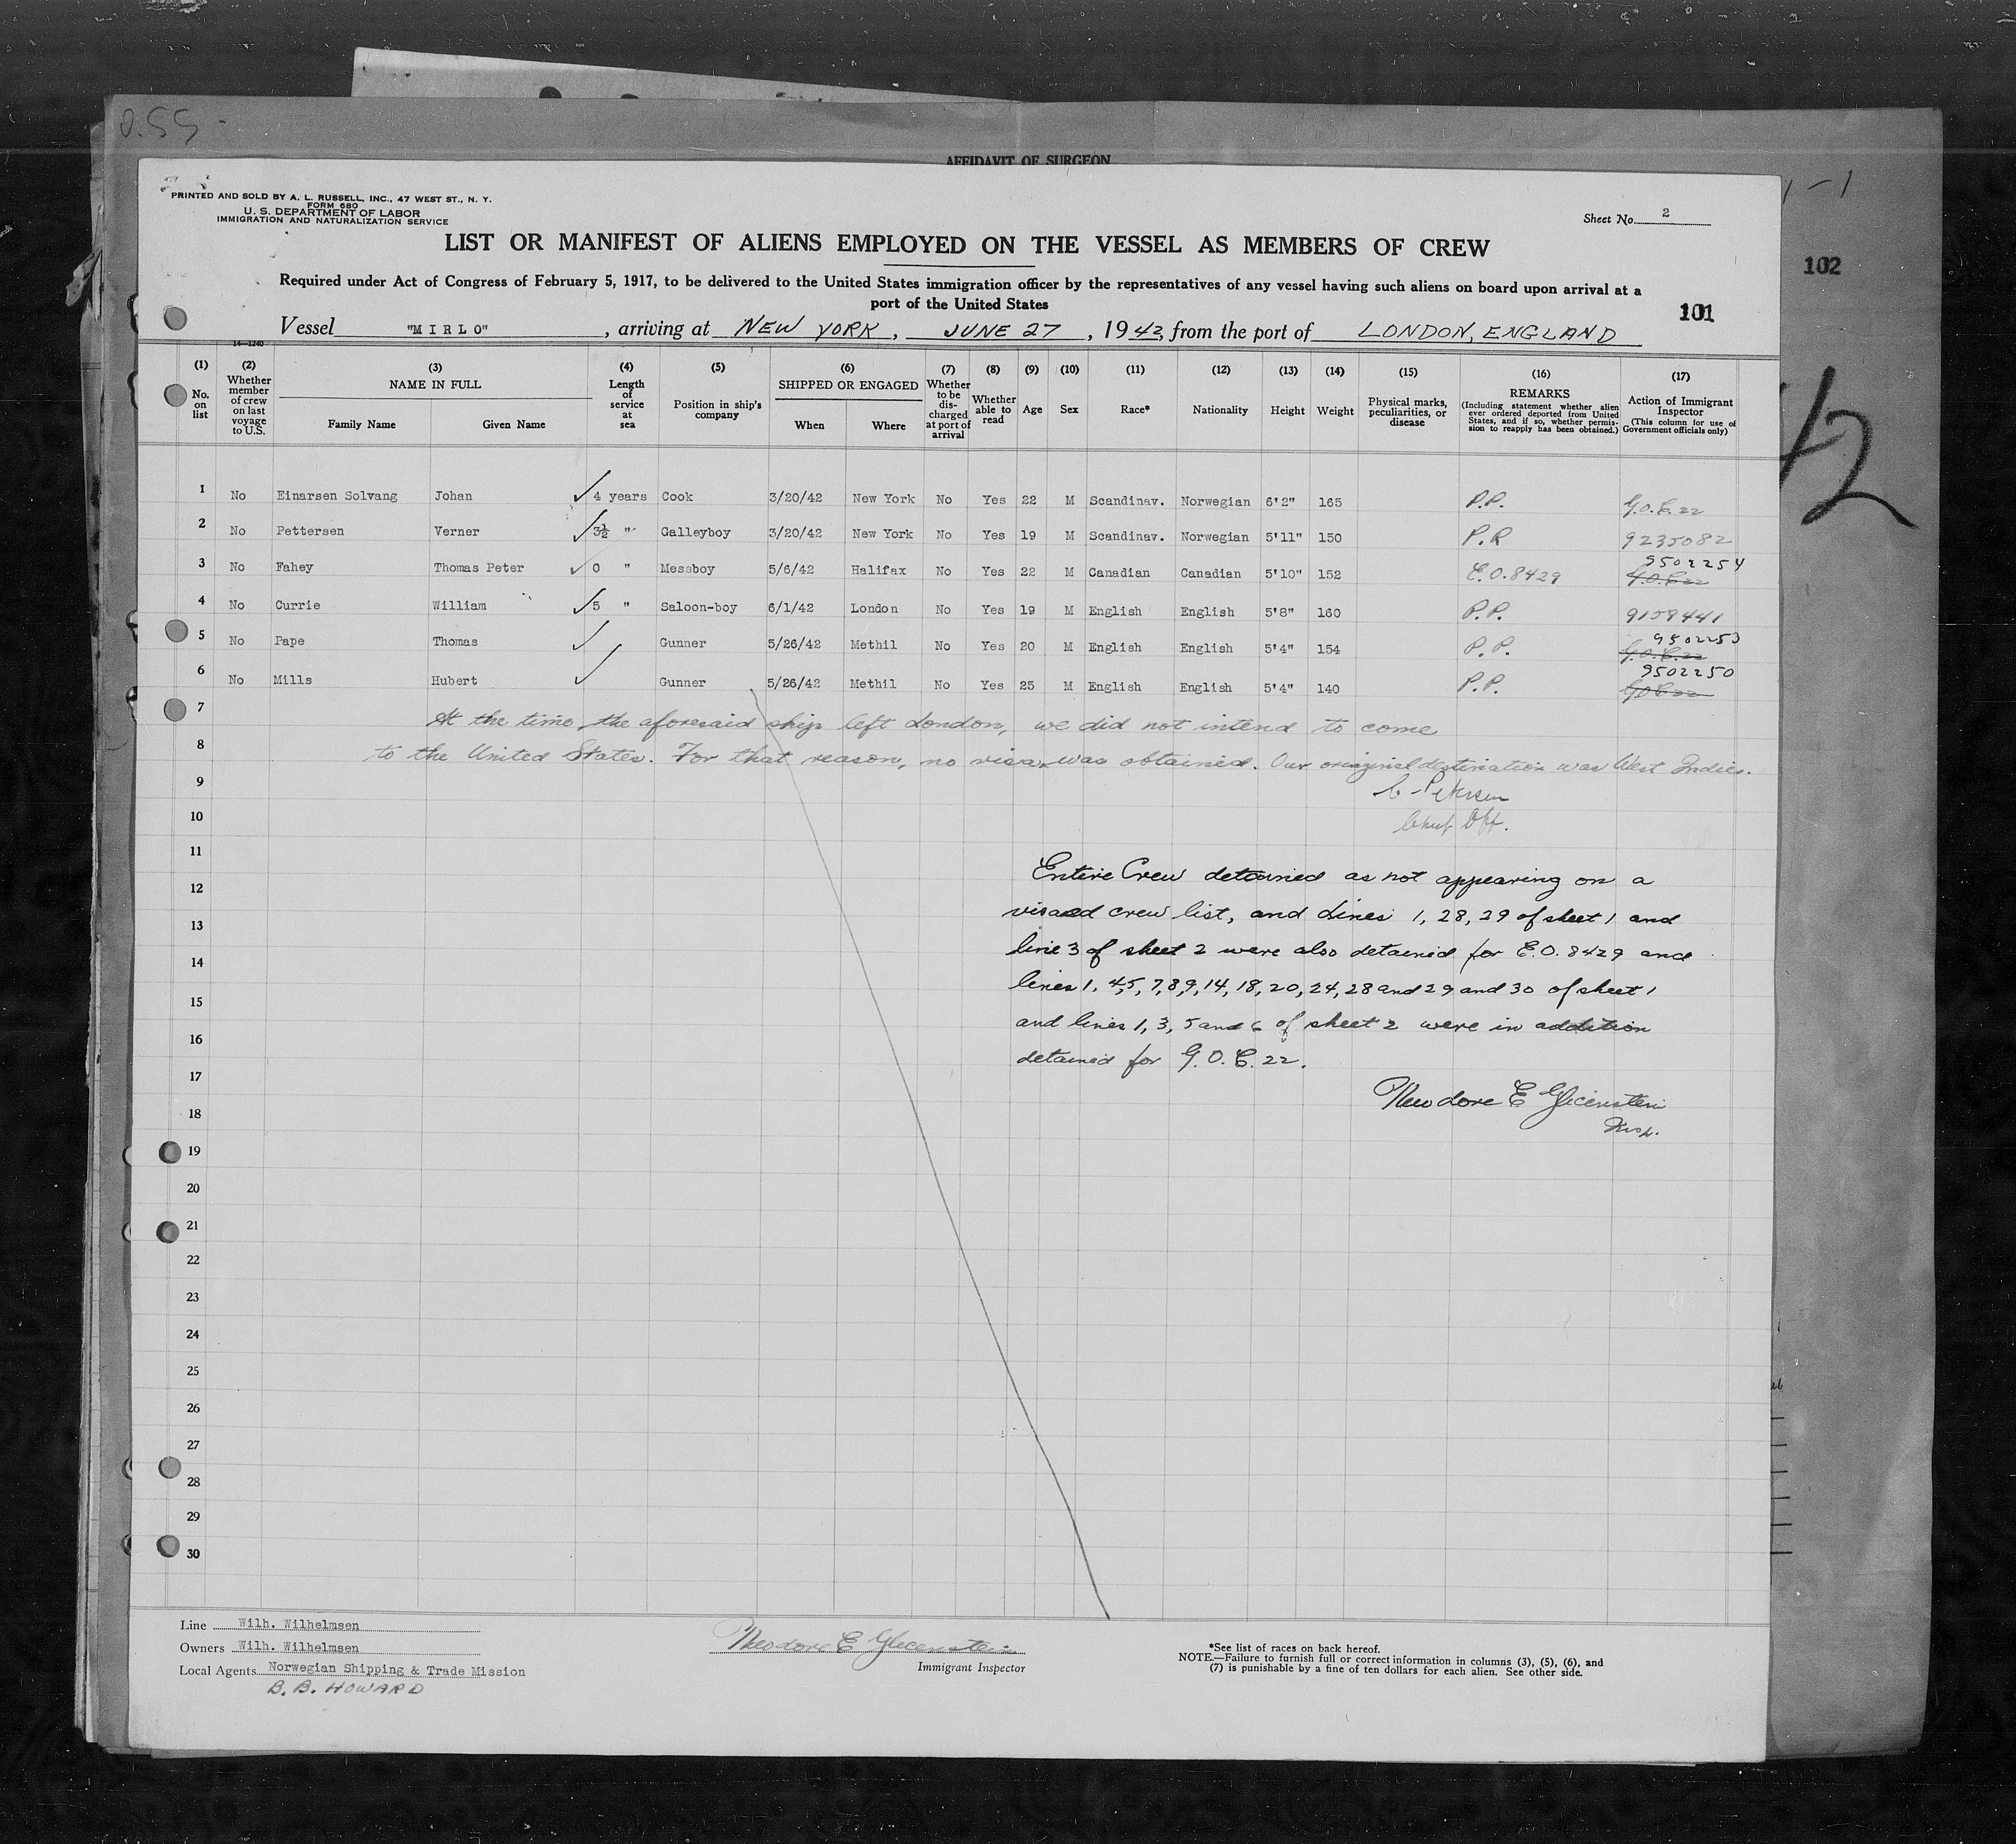 0.55-
AFFIDAVIT OF SURGEON
PRINTED AND SOLD BY A. L. RUSSELL, INC., 47 WEST ST., N. Y.
FORM 680
U. S. DEPARTMENT OF LABOR
IMMIGRATION AND NATURALIZATION SERVICE
Sheet No. 2
LIST OR MANIFEST OF ALIENS EMPLOYED ON THE VESSEL AS MEMBERS OF CREW
102
Required under Act of Congress of February 5, 1917, to be delivered to the United States immigration officer by the representatives of any vessel having such aliens on board upon arrival at a
port of the United States
101
Vessel "MIRLO", arriving at NEW YORK, JUNE 27, 1942, from the port of LONDON, ENGLAND
14—1240
(1) No. on list
(2) Whether member of crew on last voyage to U.S.
(3) NAME IN FULL Family Name Given Name
(4) Length of service at sea
(5) Position in ship's company
(6) SHIPPED OR ENGAGED When Where
(7) Whether to be discharged at port of arrival
(8) Whether able to read
(9) Age
(10) Sex
(11) Race*
(12) Nationality
(13) Height
(14) Weight
(15) Physical marks, peculiarities, or disease
(16) REMARKS (Including statement whether alien ever ordered deported from United States, and if so, whether permission to reapply has been obtained.)
(17) Action of Immigrant Inspector (This column for use of Government officials only)
42
1 No Einarsen Solvang Johan ✓ 4 years Cook 3/20/42 New York No Yes 22 M Scandinav. Norwegian 6'2" 165 P.P. G.O.C.22
2 No Pettersen Verner ✓ 3½ " Galleyboy 3/20/42 New York No Yes 19 M Scandinav. Norwegian 5'11" 150 P.P. 9235082
3 No Fahey Thomas Peter ✓ 0 " Messboy 5/6/42 Halifax No Yes 22 M Canadian Canadian 5'10" 152 E.O.8429 9502254 G.O.C.22
4 No Currie William ✓ 5 " Saloon-boy 6/1/42 London No Yes 19 M English English 5'8" 160 P.P. 9159441
5 No Pape Thomas ✓ Gunner 5/26/42 Methil No Yes 20 M English English 5'4" 154 P.P. 9502253 G.O.C.22
6 No Mills Hubert ✓ Gunner 5/26/42 Methil No Yes 25 M English English 5'4" 140 P.P. 9502250 G.O.C.22
7 At the time, the aforesaid ship left London, we did not intend to come
8 to the United States. For that reason, no visa was obtained. Our original destination was West Indies.
9 Petersen
10 Chief Off.
11
12 Entire Crew detained as not appearing on a
13 visaed crew list, and Lines 1, 28, 29 of sheet 1 and
14 line 3 of sheet 2 were also detained for E.O. 8429 and
15 lines 1, 4,5, 7,8,9,14, 18, 20, 24, 28 and 29 and 30 of sheet 1
16 and lines 1, 3, 5 and 6 of sheet 2 were in addition
17 detained for G.O.C. 22.
18 Theodore E Glicenstein
19 Insp.
20
21
22
23
24
25
26
27
28
29
30
Line Wilh. Wilhelmsen
Owners Wilh. Wilhelmsen
Local Agents Norwegian Shipping & Trade Mission
B. B. HOWARD
Theodore E Glicenstein
Immigrant Inspector
*See list of races on back hereof.
NOTE.—Failure to furnish full or correct information in columns (3), (5), (6), and
(7) is punishable by a fine of ten dollars for each alien. See other side.